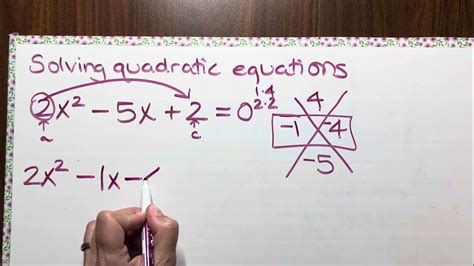 Solving quadratic equations
2x² - 5x + 2 = 0
a c
1·4
2·2
4
-1 -4
-5
2x² - 1x -